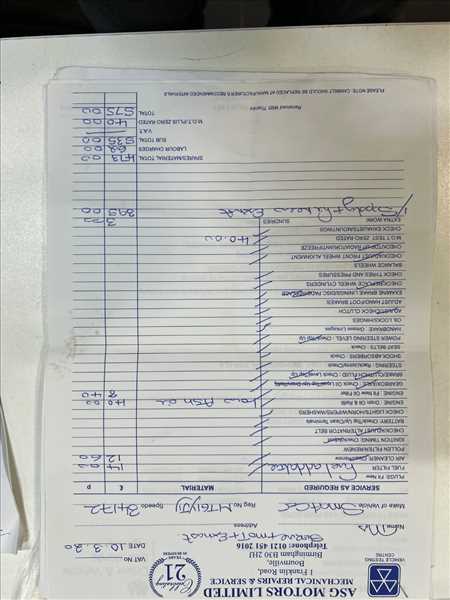 ASG MOTORS LIMITED
MECHANICAL REPAIRS & SERVICE
1 Franklin Road,
Bournville,
Birmingham B30 2HJ
Telephone: 0121 451 2016
VEHICLE TESTING
CENTRE
Celebrating
21
VAT NO
DATE 10.3.20
Name
Address
Make of Vehicle Smart Car Reg No. Speedo 34172
SERVICE AS REQUIRED MATERIAL £ p
PLUGS Fit New
FUEL FILTER Fuel additive 14 00
AIR CLEANER 12 60
POLLEN FILTER/RENEW
IGNITION TIMING
CHECK/ADJUST ALTERNATOR BELT
BATTERY Check/Top Up/Clean Terminals
CHECK LIGHTS/HORN/WIPERS/WASHERS
ENGINE : Drain Oil & Refill Low Ash oil 40 00
ENGINE : Fit New Oil Filter 8 40
GEARBOX/AXLE : Check Oil Level/Top Up/
BRAKE/CLUTCH FLUID : Check Level/Top Up
STEERING :
SHOCK ABSORBERS : Check
SEAT BELTS : Check
POWER STEERING LEVEL : Check/Top Up
HANDBRAKE : Grease Linkages
OIL LOCKS/HINGES
ADJUST/CHECK CLUTCH
ADJUST HAND/FOOT BRAKES
EXAMINE BRAKE LININGS/DISC/
CHECK/RENEW WHEEL CYLINDERS
CHECK TYRES AND PRESSURES
BALANCE WHEELS
CHECK/ADJUST FRONT WHEEL ALIGNMENT
CHECK/TOP UP RADIATOR/ANTIFREEZE
M.O.T TEST ZERO RATED 40.00
CHECK EXHAUST/MOUNTINGS
EXTRA WORK SUNDRIES 3 00
395 00
SPARES/MATERIAL TOTAL 473 00
LABOUR CHARGES 62 00
SUB TOTAL 535 00
V.A.T.
M.O.T PLUS ZERO RATED 40 00
TOTAL 575 00
Received With Thanks
PLEASE NOTE: CAMBELT SHOULD BE REPLACED AT MANUFACTURER'S RECOMMENDED INTERVALS